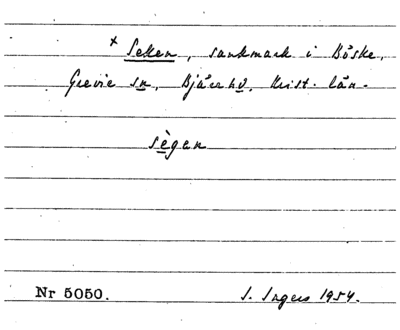 × Seken, sankmark i Böske,
Grevie sn, Bjäre hd. Krist. län.
sègen
Nr 5050.
S. Ingers 1954.